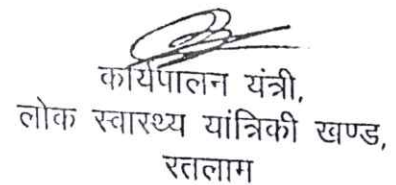 कार्यपालन यंत्री,
लोक स्वास्थ्य यांत्रिकी खण्ड,
रतलाम